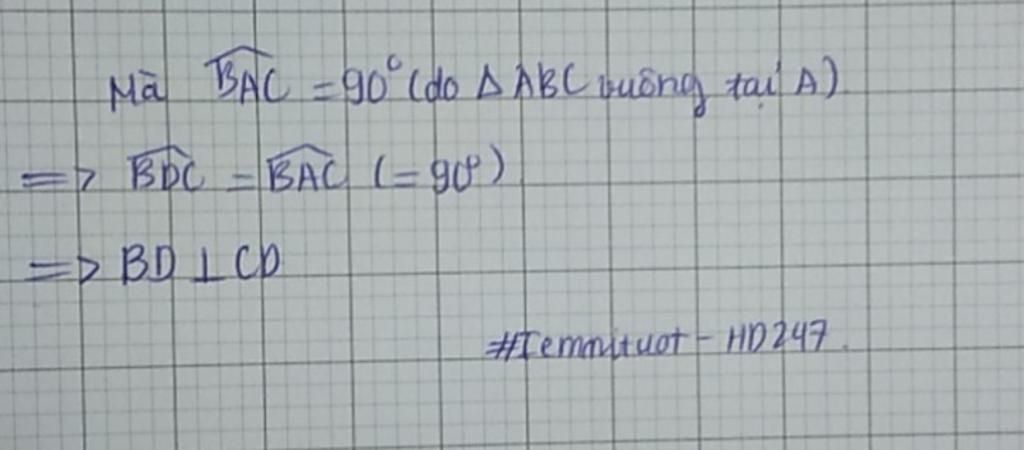 Mà BAC = 90° (do Δ ABC vuông tại A)
=> BDC = BAC (= 90°)
=> BD ⊥ CD
#Temmituot - HD247.